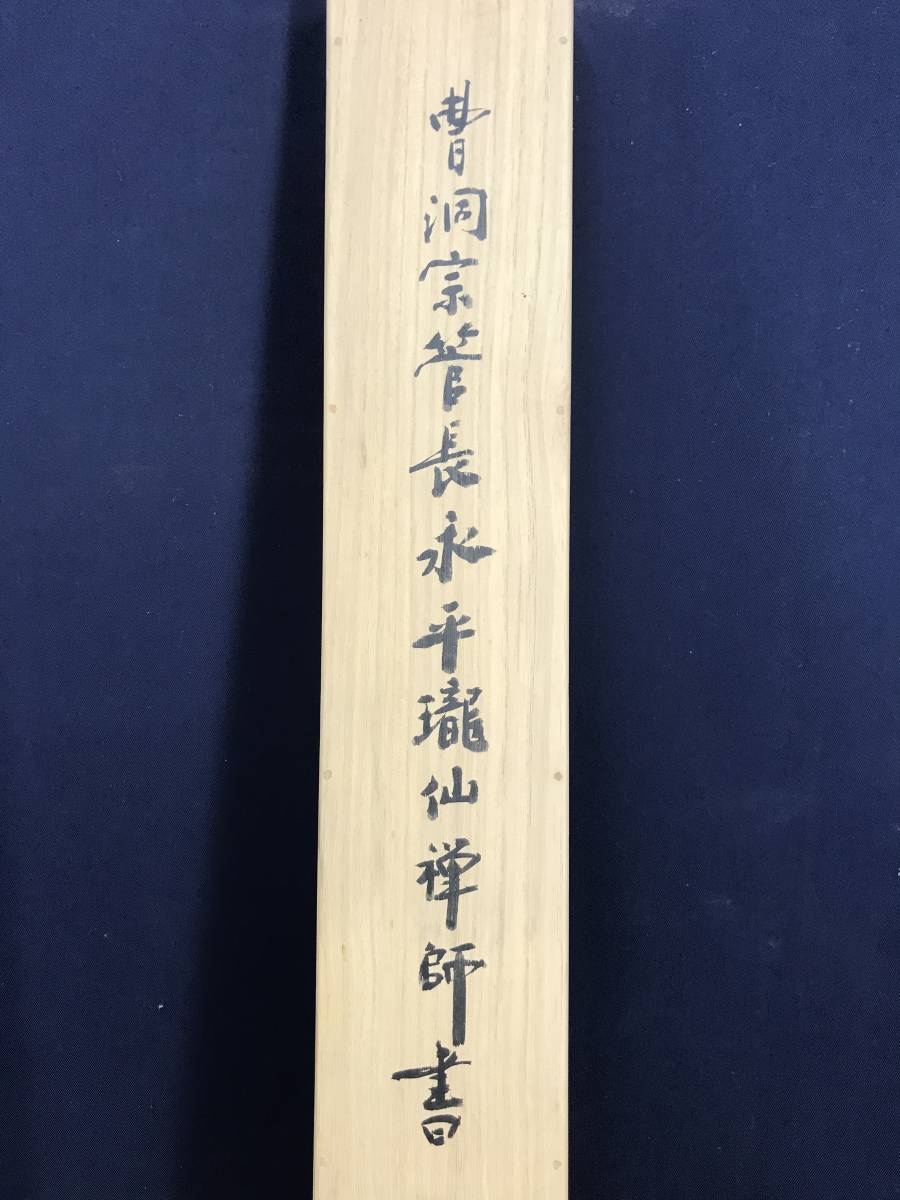 曹洞宗管長永平瓏仙禅師書